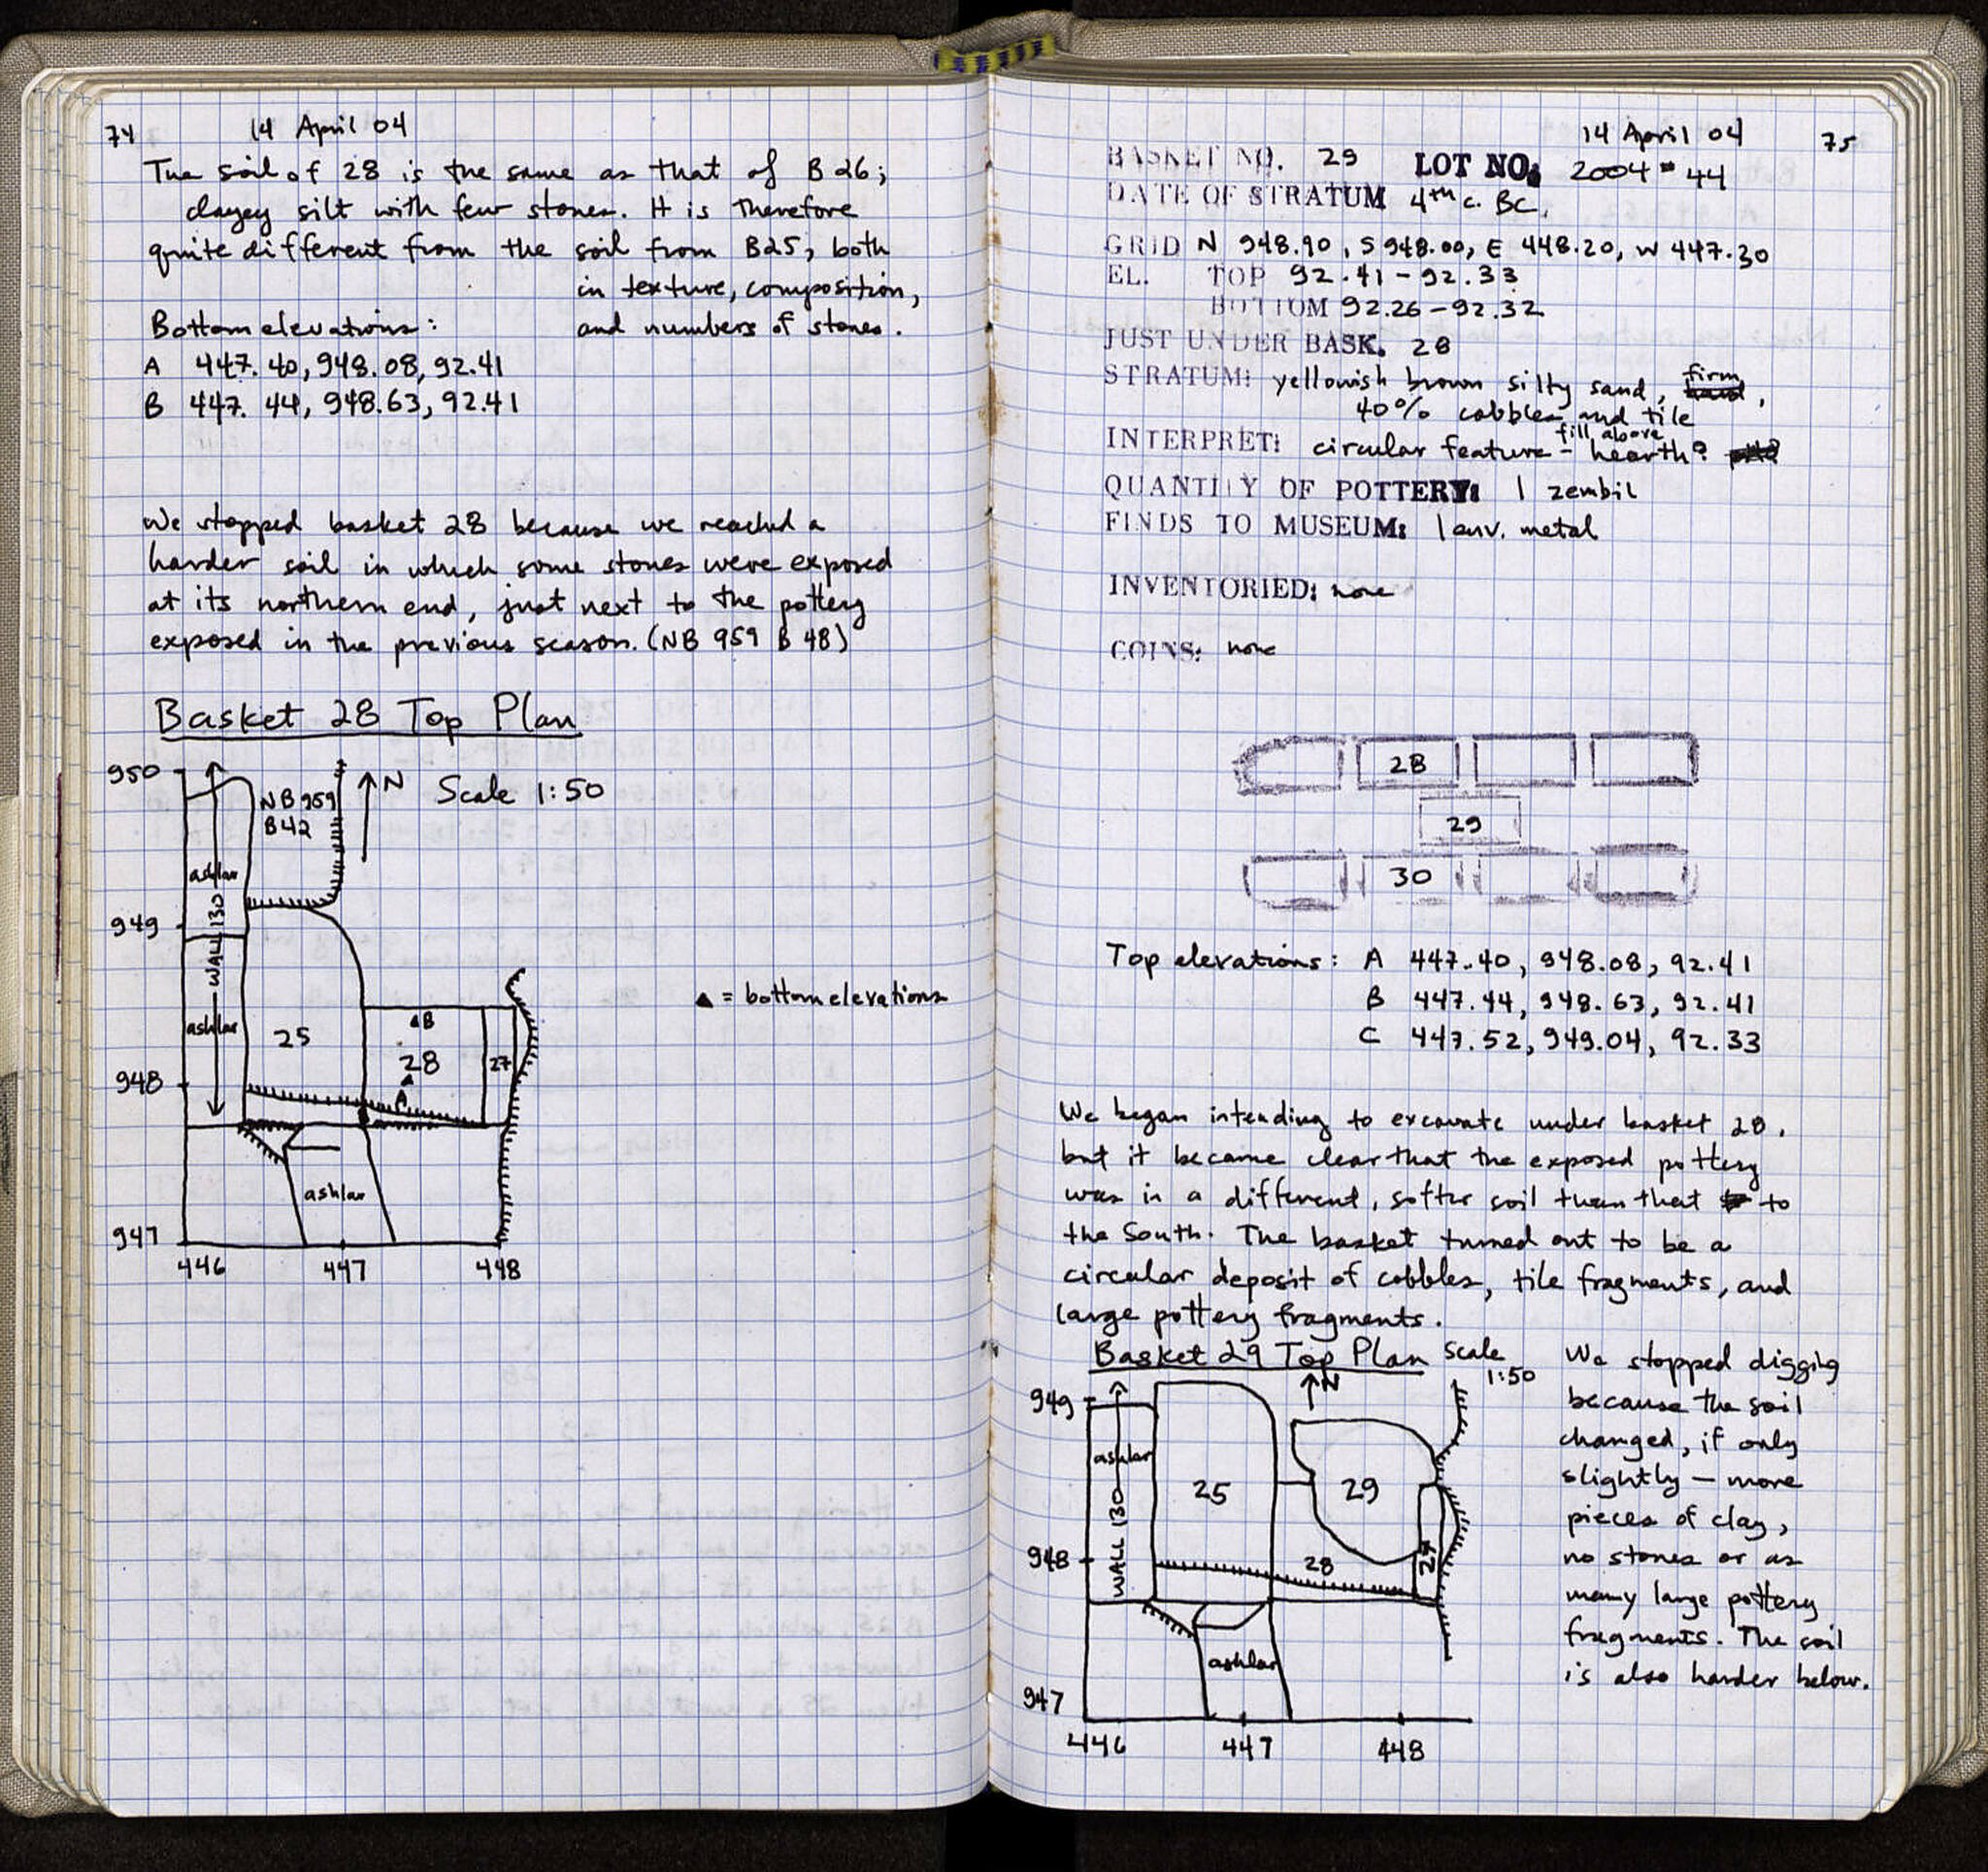 74
14 April 04
The soil of 28 is the same as that of B 26;
clayey silt with few stones. It is therefore
quite different from the soil from B25, both
in texture, composition,
and numbers of stones.
Bottom elevations:
A 447.40, 948.08, 92.41
B 447.44, 948.63, 92.41
We stopped basket 28 because we reached a
harder soil in which some stones were exposed
at its northern end, just next to the pottery
exposed in the previous season. (NB 959 B 48)
Basket 28 Top Plan
N Scale 1:50
950
NB 959
B42
ashlar
949
WALL 130
ashlar
25
▲B
28
27
▲ = bottom elevations
948
A
ashlar
947
446 447 448
14 April 04
75
BASKET NO. 29 LOT NO: 2004-44
DATE OF STRATUM 4th c. BC.
GRID N 948.90, S 948.00, E 448.20, W 447.30
EL. TOP 92.41-92.33
BOTTOM 92.26-92.32
JUST UNDER BASK. 28
STRATUM: yellowish brown silty sand, firm,
40% cobbles and tile
INTERPRET: circular feature - fill above hearth?
QUANTITY OF POTTERY: 1 zembil
FINDS TO MUSEUM: 1 env. metal
INVENTORIED: none
COINS: none
28
29
30
Top elevations: A 447.40, 948.08, 92.41
B 447.44, 948.63, 92.41
C 447.52, 949.04, 92.33
We began intending to excavate under basket 28,
but it became clear that the exposed pottery
was in a different, softer soil than that to
the South. The basket turned out to be a
circular deposit of cobbles, tile fragments, and
large pottery fragments.
Basket 29 Top Plan Scale
1:50
N
949
ashlar
25
29
WALL 130
948
28
27
ashlar
947
446 447 448
We stopped digging
because the soil
changed, if only
slightly — more
pieces of clay,
no stones or as
many large pottery
fragments. The soil
is also harder below.